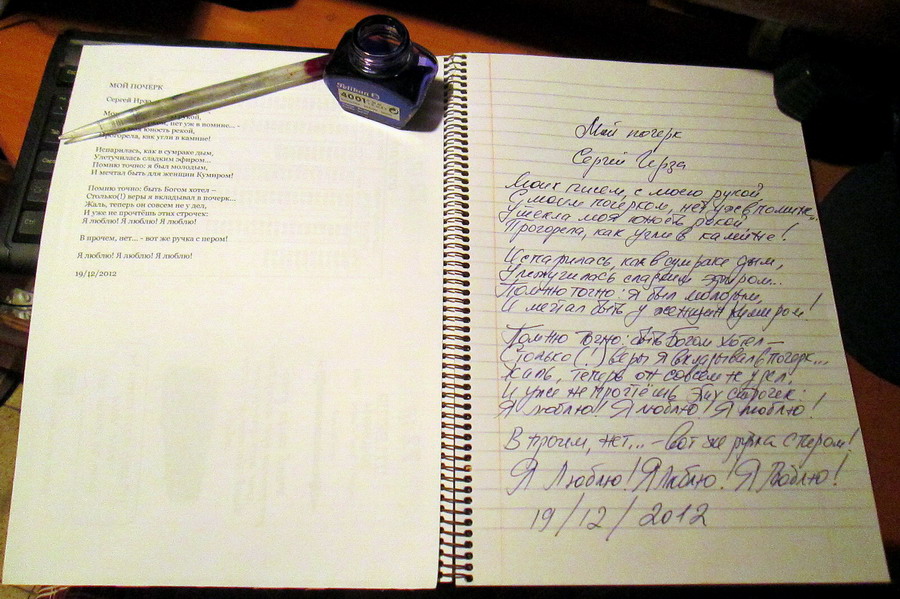 МОЙ ПОЧЕРК
Сергей Ирза
Мои рукой,
нет уж в помине... -
юность рекой,
Прогорела, как угли в камине!
Испарилась, как в сумраке дым,
Улетучилась сладким эфиром...
Помню точно: я был молодым,
И мечтал быть для женщин Кумиром!
Помню точно: быть Богом хотел –
Столько(!) веры я вкладывал в почерк...
Жаль, теперь он совсем не у дел,
И уже не прочтёшь этих строчек:
Я люблю! Я люблю! Я люблю!
В прочем, нет... - вот же ручка с пером!
Я люблю! Я люблю! Я люблю!
19/12/2012
Pelikan
4001
Мой почерк
Сергей Ирза
Моих писем, с моею рукой
С моим почерком, нет уж в помине...
Утекла моя юность рекой,
Прогорела, как угли в камине!
Испарилась, как в сумраке дым,
Улетучилась сладким эфиром...
Помню точно: я был молодым,
И мечтал быть у женщин кумиром!
Помню точно: быть Богом хотел –
Столько(!) веры я вкладывал в почерк...
Жаль, теперь он совсем не у дел,
И уже не прочтёшь этих строчек:
Я люблю! Я люблю! Я люблю!
В прочем, нет... - вот же ручка с пером!
Я Люблю! Я Люблю! Я Люблю!
19/12/2012